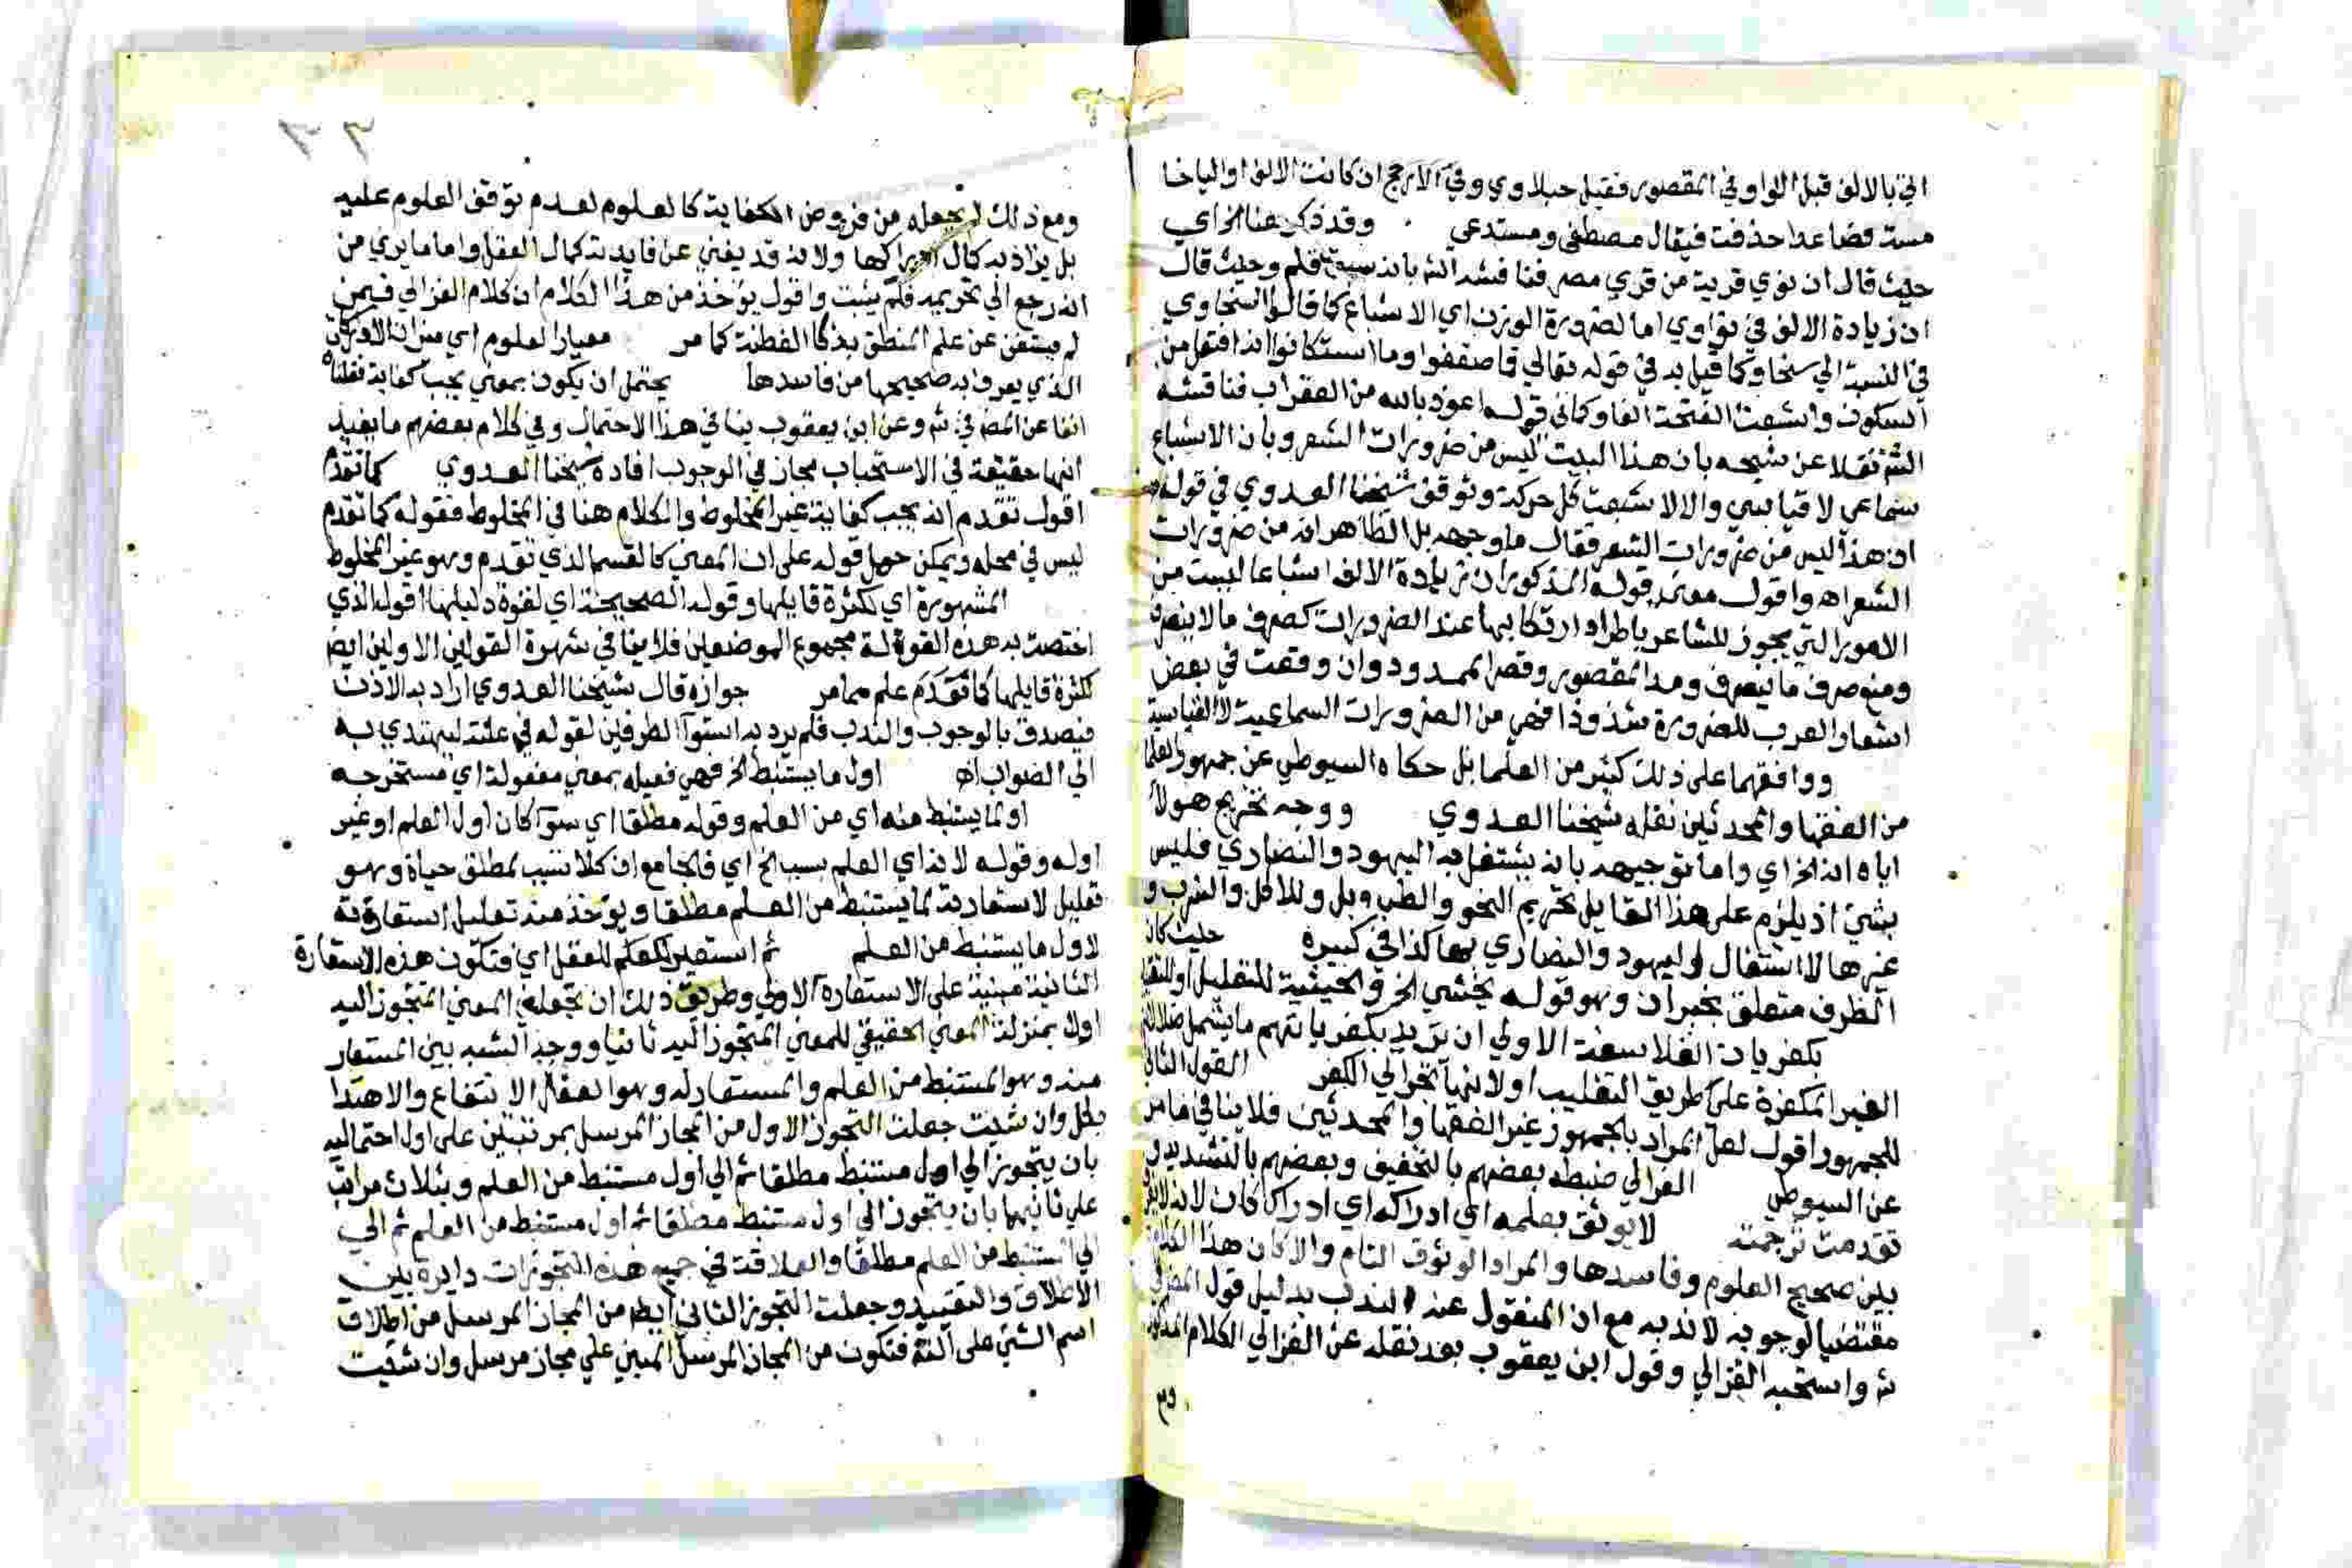 اتي بالالف قبل الواو في المقصور فقيل حبلاوي وفي الارجح ان كانت الالف او اليا خا
مسة فصاعدا حذفت فيقال مصطفي ومستدعي وقد ذكر هنا الخ اي
حيث قال ان نوي قرية من قري مصر فنا قشه الش بانه سبق قلم وحيث قال
ان زيادة الالف في نواوي اما لضرورة الوزن اي الاشباع كما قال السخاوي
في النسبة الي سخا وكما قيل به في قوله تعالي فاضعفوا وما استكانوا انه افتعل من
السكون واشبعت الفتحة الفا وكما في قوله اعوذ بالله من العقراب فناقشه
الش نقلا عن شيخه بان هذا البيت ليس من ضرورات الشعر وبان الاشباع
سماعي لا قياسي والا لاشبعت كل حركة وتوقف شيخنا العدوي في قوله
ان هذا ليس من ضرورات الشعر فقال ما وجهه بل الظاهر انه من ضرورات
الشعر اه واقول معني قوله المذكور ان زيادة الالف اشباعا ليست من
الامور التي يجوز للشاعر باطراد ارتكابها عند الضرورات كصرف ما لا ينصرف
ومنع صرف ما ينصرف ومد المقصور وقصر الممدود وان وقعت في بعض
اشعار العرب للضرورة شذوذا فهي من الضرورات السماعية لا القياسية
ووافقهما علي ذلك كثير من العلما بل حكاه السيوطي عن جمهور العلما
من الفقها والمحدثين نقله شيخنا العدوي ووجه تخريج هولا
اياه انه الخ اي واما توجيهه بانه يشتغل به اليهود والنصاري فليس
بشي اذ يلزم علي هذا القايل تحريم النحو والطب وبل وللاكل والشرب و
غيرها لاشتغال اليهود والنصاري بها كذا في كبيره حيث كان
الظرف متعلق بخبر ان وهو قوله يخشي الخ والحيثية للتعليل او للتقييد
بكفريات الفلاسفة الاولي ان يريد بكفرياتهم ما يشمل ضلالاتهم
الغير المكفرة علي طريق التغليب او لانها تجر الي الكفر القول الثاني
للجمهور اقول لعل المراد بالجمهور غير الفقها والمحدثين فلا ينافي ما مر
عن السيوطي الغزالي ضبطه بعضهم بالتخفيف وبعضهم بالتشديد
تقدمت ترجمته لا يوثق بعلمه اي ادراكه اي ادراكا كان لانه لا
بين صحيح العلوم وفاسدها والمراد الوثوق التام والا كان هذا
مقتضيا لوجوبه لا ندبه مع ان المنقول عنه الندب بدليل قول
ش واستحبه الغزالي وقول ابن يعقوب بعد نقله عن الغزالي الكلام المذكور
ومع
٣٣
ومع ذلك لم يجعله من فروض الكفاية كالعلوم لعدم توقف العلوم عليه
بل يزاد به كمال ادراكها ولانه قد يغني عن فايدته كمال العقل واما ما يري من
انه رجع الي تحريمه فلم يثبت واقول يؤخذ من هذا الكلام ان كلام الغزالي فيمن
لم يستغن عن علم المنطق بذكا الفطنة كما مر معيار العلوم اي ميزان الادراك
الذي يعرف به صحيحها من فاسدها يحتمل ان يكون بمعني يجب كفاية نقلناه
انفا عن المص في ش وعن ابن يعقوب ينافي هذا الاحتمال وفي كلام بعضهم ما يفيد
انها حقيقة في الاستحباب مجاز في الوجوب افاده شيخنا العدوي كما تقدم
اقول تقدم انه يجب كفاية غير المخلوط والكلام هنا في المخلوط فقوله كما تقدم
ليس في محله ويمكن حمل قوله علي ان المعني كالقسم الذي تقدم وهو غير المخلوط
المشهورة اي لكثرة قايلها وقوله الصحيحة اي لقوة دليلها اقول الذي
اختصت به هذه القولة مجموع الموضعين فلا ينافي شهرة القولين الاولين ايض
لكثرة قايلها كما تقدم علم مما مر جوازه قال شيخنا العدوي اراد به الاذن
فيصدق بالوجوب والندب فلم يرد به استوآ الطرفين لقوله في علته ليهتدي به
الي الصواب اه اول ما يستنبط الخ فهي فعيله بمعني مفعولة اي مستخرجه
او لما يستنبط منه اي من العلم وقوله مطلقا اي سوآ كان اول العلم او غير
اوله وقوله لانه اي العلم بسبب الخ اي فالجامع ان كلا سبب لمطلق حياة وهو
تعليل لاستعارته لما يستنبط من العلم مطلقا ويؤخذ منه تعليل استعارته
لاول ما يستنبط من العلم ثم استعير للعلم للعقل اي فتكون هذه الاستعارة
الثانية مبنية علي الاستعارة الاولي وطريق ذلك ان تجعل المعني المتجوز اليه
اولا بمنزلة المعني الحقيقي للمعني المتجوز اليه ثانيا ووجه الشبه بين المستعار
منه وهو المستنبط من العلم والمستعار له وهو العقل الانتفاع والاهتدا
بكل وان شيت جعلت التجوز الاول من المجاز المرسل بمرتبتين علي اول احتماليه
بان يتجوز الي اول مستنبط مطلقا ثم الي اول مستنبط من العلم وبثلاث مراتب
علي ثانيهما بان يتجوز الي اول مستنبط مطلقا ثم اول مستنبط من العلم ثم الي
الي المستنبط من العلم مطلقا والعلاقة في جميع هذه التجوزات دايرة بين
الاطلاق والتقييد وجعلت التجوز الثاني ايضا من المجاز المرسل من اطلاق
اسم الشي علي آلته فتكون من المجاز المرسل المبني علي مجاز مرسل وان شيت